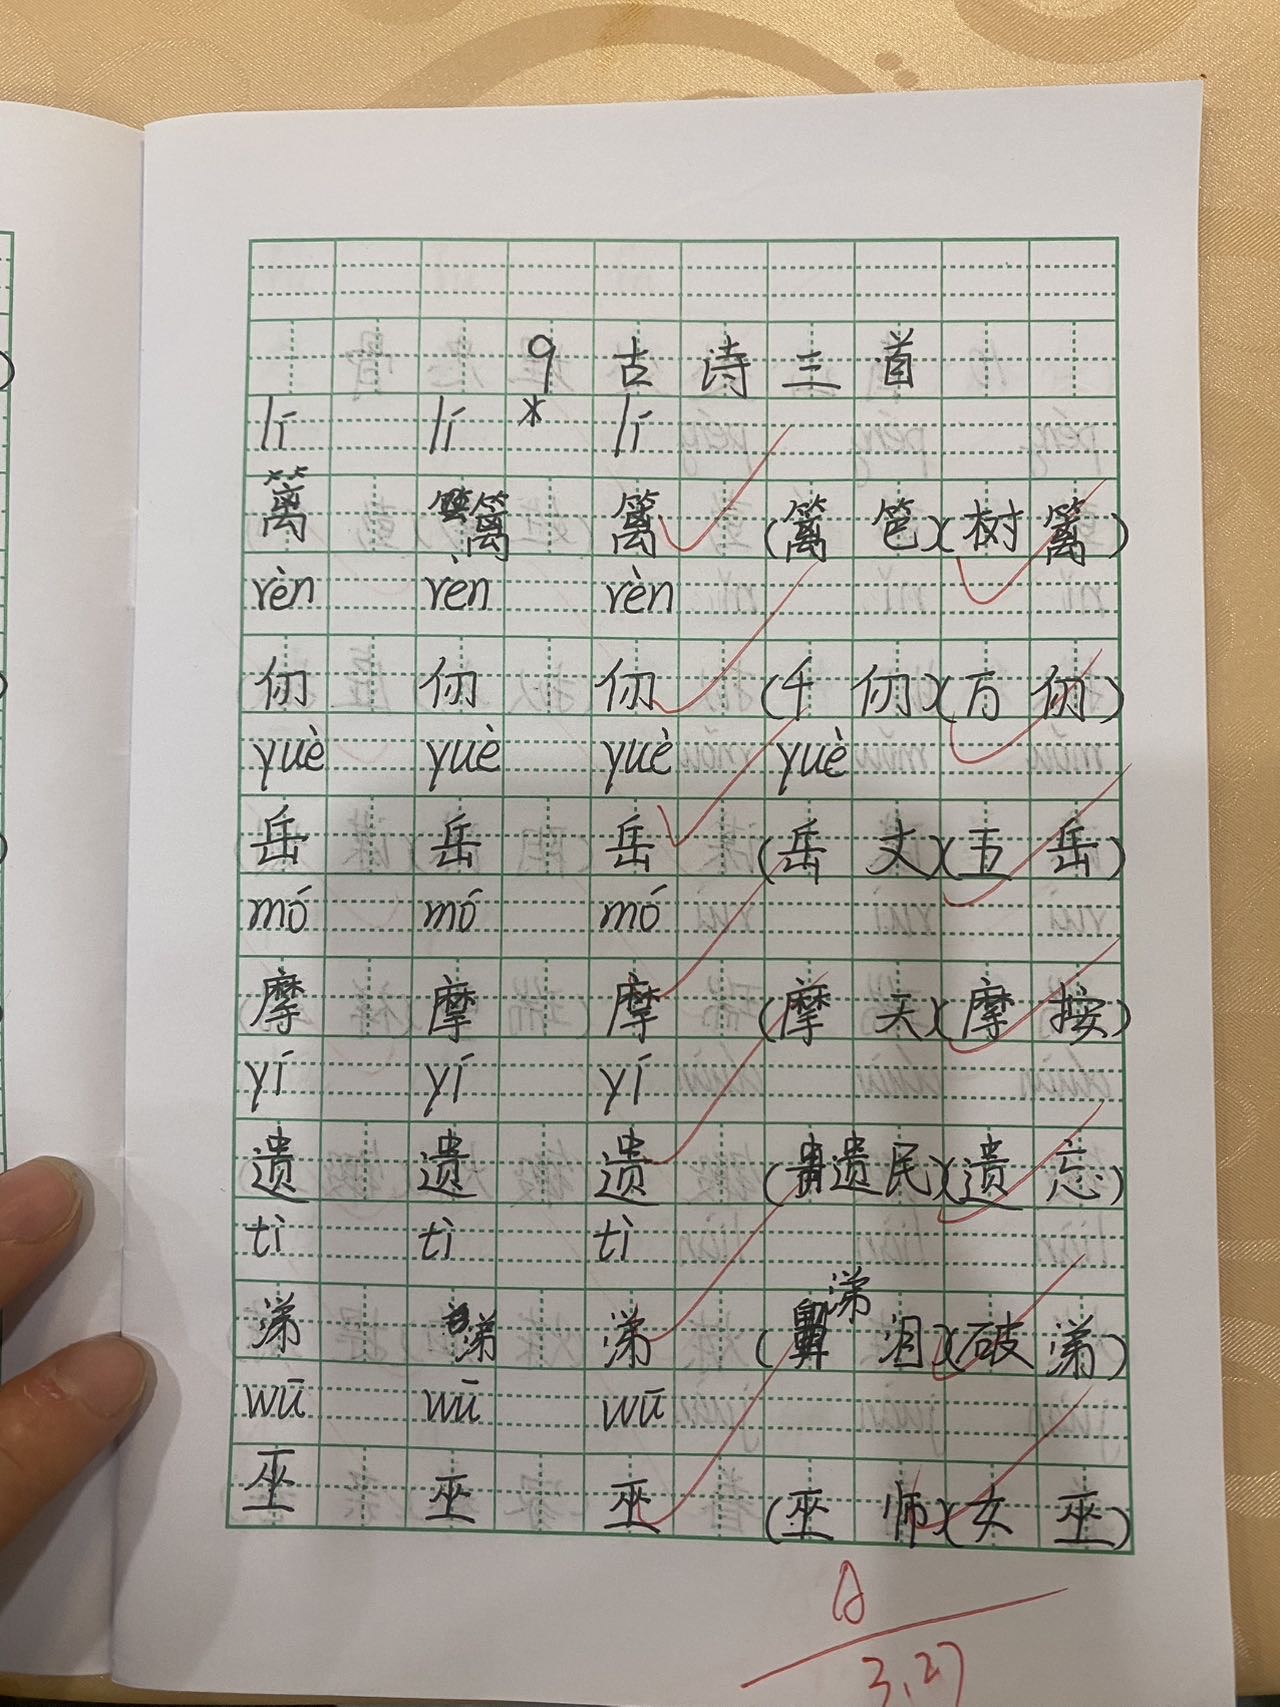 9古诗三首
lí lí * lí
篱 篱 篱 (篱笆)(树篱)
rèn rèn rèn
仞 仞 仞 (千仞)(万仞)
yuè yuè yuè yuè
岳 岳 岳 (岳丈)(五岳)
mó mó mó
摩 摩 摩 (摩天)(摩按)
yí yí yí
遗 遗 遗 (遗民)(遗忘)
tì tì tì
涕 涕 涕 (涕泪)(破涕)
wū wū wū
巫 巫 巫 (巫师)(女巫)
A
3.27